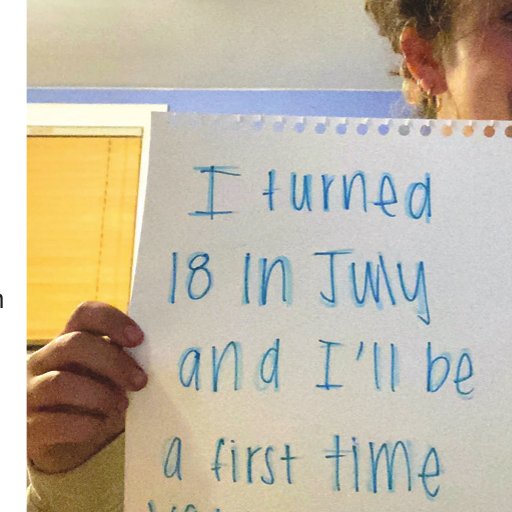 I turned
18 in July
and I'll be
a first time